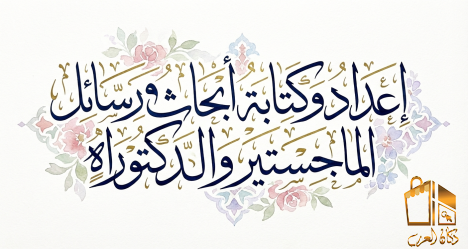 إعداد وكتابة أبحاث ورسائل
الماجستير والدكتوراه
دكان العرب